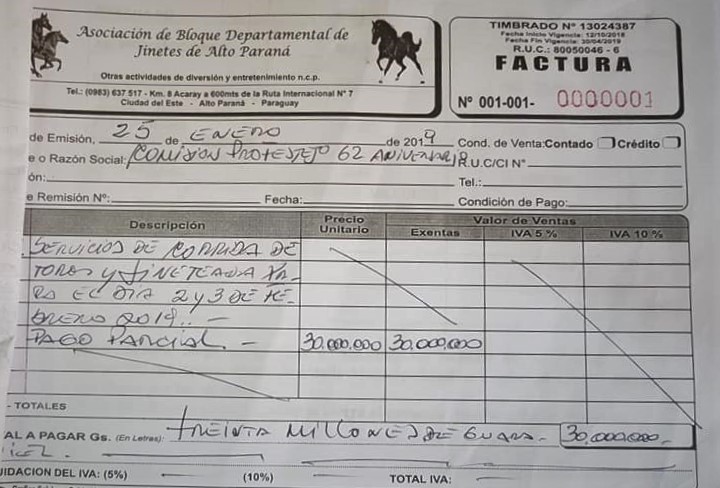 Asociación de Bloque Departamental de
Jinetes de Alto Paraná
Otras actividades de diversión y entretenimiento n.c.p.
Tel.: (0983) 637 517 - Km. 8 Acaray a 600mts de la Ruta Internacional N° 7
Ciudad del Este - Alto Paraná - Paraguay
TIMBRADO N° 13024387
Fecha Inicio Vigencia: 12/10/2018
Fecha Fin Vigencia: 30/04/2019
R.U.C.: 80050046 - 6
FACTURA
N° 001-001- 0000001
de Emisión, 25 de ENERO de 2019 Cond. de Venta: Contado Crédito
e o Razón Social: COMISION PROFESTEJO 62 ANIVERSARIO R.U.C/CI N°
ón: Tel.:
e Remisión N°: Fecha: Condición de Pago:
Descripción Precio Unitario Valor de Ventas
Exentas IVA 5 % IVA 10 %
SERVICIOS DE CORRIDA DE
TOROS y JINETEADA PA-
RA EL DIA 2 y 3 DE FE-
BRERO 2019.. -
PAGO PARCIAL. - 30.000.000 30.000.000
- TOTALES
AL A PAGAR Gs. (En Letras): TREINTA MILLONES DE GUARA- 30.000.000-
NIES.
UIDACION DEL IVA: (5%) (10%) TOTAL IVA: